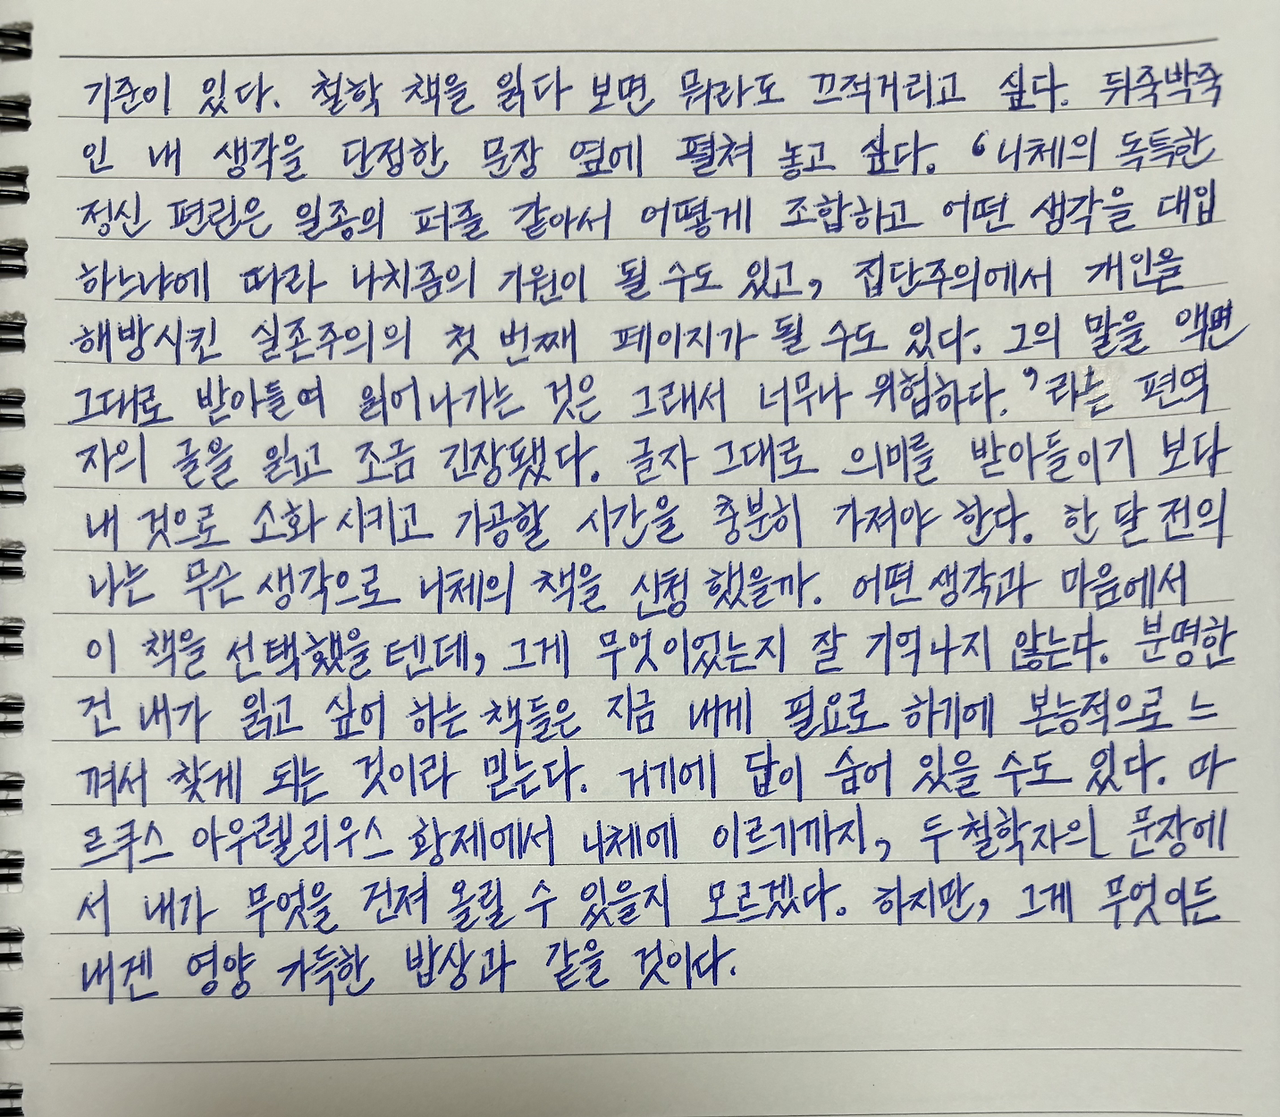 기준이 있다. 철학 책을 읽다 보면 뭐라도 끄적거리고 싶다. 뒤죽박죽
인 내 생각을 단정한 문장 옆에 펼쳐 놓고 싶다. ‘니체의 독특한
정신 편린은 일종의 퍼즐 같아서 어떻게 조합하고 어떤 생각을 대입
하느냐에 따라 나치즘의 기원이 될 수도 있고, 집단주의에서 개인을
해방시킨 실존주의의 첫 번째 페이지가 될 수도 있다. 그의 말을 액면
그대로 받아들여 읽어나가는 것은 그래서 너무나 위험하다.’라는 편역
자의 글을 읽고 조금 긴장됐다. 글자 그대로 의미를 받아들이기 보다
내 것으로 소화 시키고 가공할 시간을 충분히 가져야 한다. 한 달 전의
나는 무슨 생각으로 니체의 책을 신청했을까. 어떤 생각과 마음에서
이 책을 선택했을 텐데, 그게 무엇이었는지 잘 기억나지 않는다. 분명한
건 내가 읽고 싶어 하는 책들은 지금 내게 필요로 하기에 본능적으로 느
껴서 찾게 되는 것이라 믿는다. 거기에 답이 숨어 있을 수도 있다. 마
르쿠스 아우렐리우스 황제에서 니체에 이르기까지, 두 철학자의 문장에
서 내가 무엇을 건져 올릴 수 있을지 모르겠다. 하지만, 그게 무엇이든
내겐 영양 가득한 밥상과 같을 것이다.